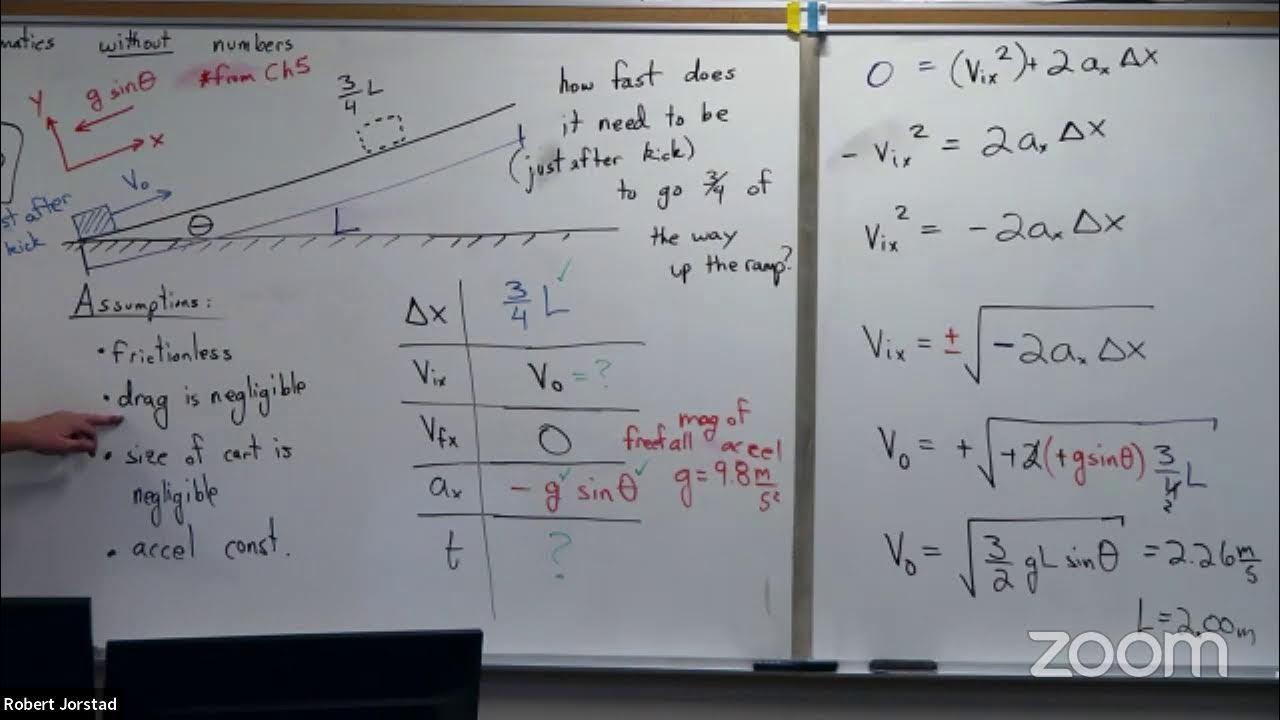 without numbers
g sinθ
*from Ch5
Y
x
3/4 L
V₀
θ
L
after
kick
how fast does
it need to be
(just after kick)
to go 3/4 of
the way
up the ramp?
Assumptions:
• frictionless
• drag is negligible
• size of cart is
negligible
• accel const.
Δx 3/4 L ✓
Vix V₀ = ?
Vfx 0
ax - g ✓ sin θ ✓
t ?
mag of
freefall accel
g = 9.8 m/s²
0 = (Vix²) + 2 ax Δx
- Vix² = 2 ax Δx
Vix² = -2 ax Δx
Vix = ± √(-2 ax Δx)
V₀ = + √(+2(+g sinθ) 3/4 L)
2
V₀ = √(3/2 g L sinθ) = 2.26 m/s
L = 2.00 m
zoom
Robert Jorstad